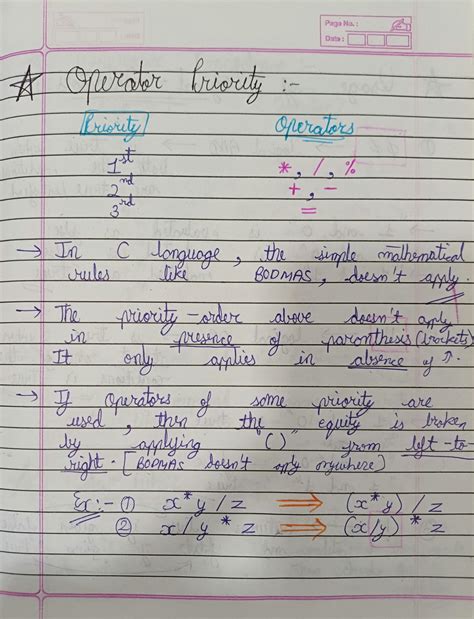 Page No.:
Date:
Operator Priority :-
Priority Operators
1st *, /, %
2nd +, -
3rd =
→ In C language, the simple mathematical
rules like BODMAS, doesn't apply
→ The priority-order above doesn't apply
in presence of paronthesis (brackets)
It only applies in absence of ↑.
→ If Operators of same priority are
used, then the "equity is broken
by applying ( )" from left-to-
right. [BODMAS doesn't apply anywhere]
Ex:- ① x*y/z ⇒ (x*y)/z
② x/y*z ⇒ (x/y)*z